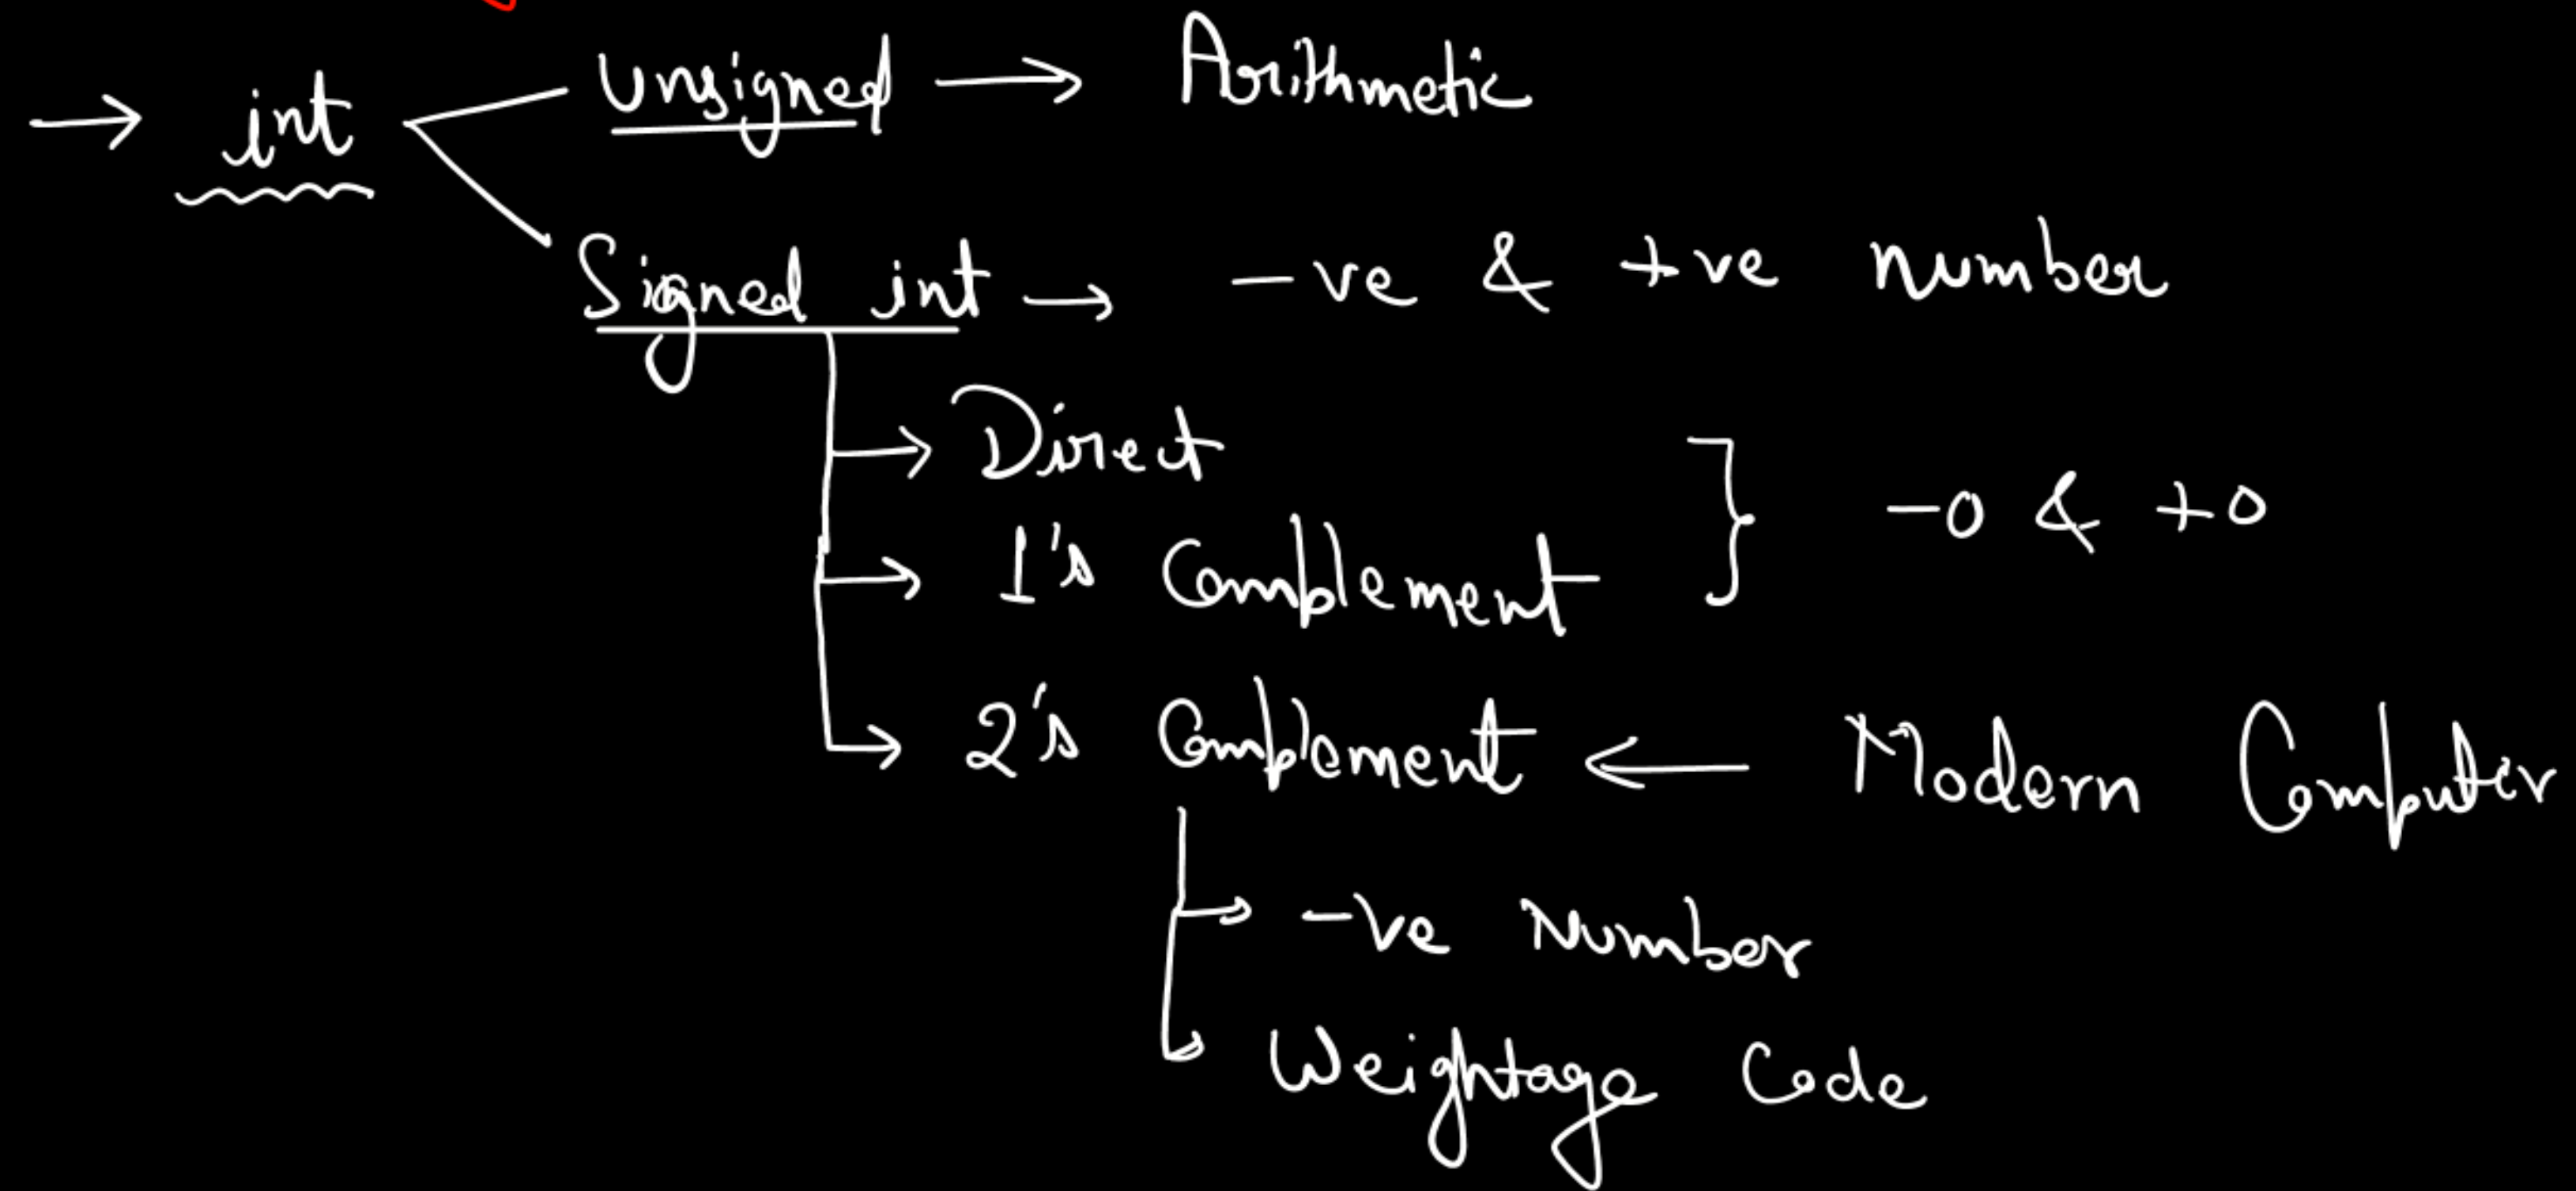 → int
Unsigned → Arithmetic
Signed int → -ve & +ve number
→ Direct
→ 1's Complement } -0 & +0
→ 2's Complement ← Modern Computer
→ -ve Number
→ Weightage Code